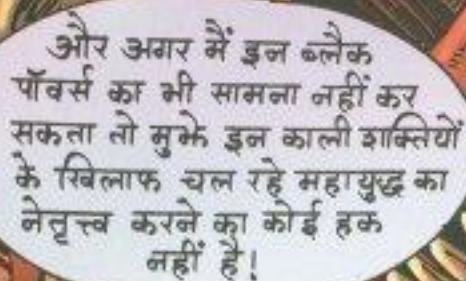 और अगर मैं इन ब्लैक
पॉवर्स का भी सामना नहीं कर
सकता तो मुझे इन काली शक्तियों
के खिलाफ चल रहे महायुद्ध का
नेतृत्त्व करने का कोई हक
नहीं है!